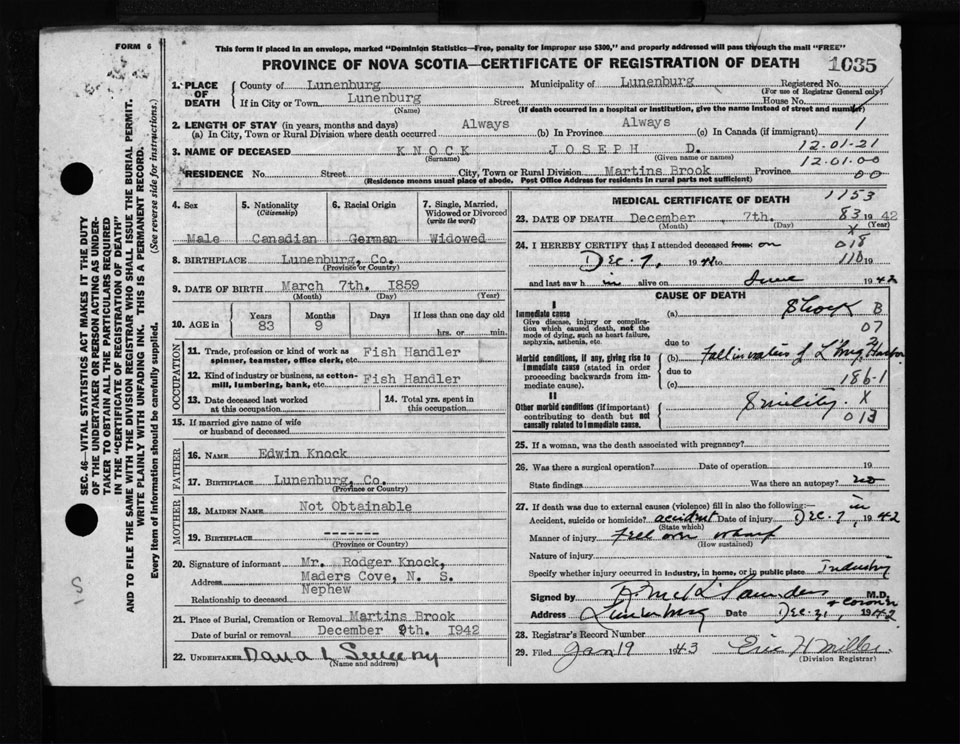 FORM 6
This form if placed in an envelope, marked "Dominion Statistics—Free, penalty for improper use $300," and properly addressed will pass through the mail "FREE"
PROVINCE OF NOVA SCOTIA—CERTIFICATE OF REGISTRATION OF DEATH 1035
SEC. 46—VITAL STATISTICS ACT MAKES IT THE DUTY
OF THE UNDERTAKER OR PERSON ACTING AS UNDER-
TAKER TO OBTAIN ALL THE PARTICULARS REQUIRED
IN THE "CERTIFICATE OF REGISTRATION OF DEATH"
AND TO FILE THE SAME WITH THE DIVISION REGISTRAR WHO SHALL ISSUE THE BURIAL PERMIT.
WRITE PLAINLY WITH UNFADING INK. THIS IS A PERMANENT RECORD.
Every item of information should be carefully supplied. (See reverse side for instructions.)
1. PLACE OF DEATH
County of Lunenburg Municipality of Lunenburg Registered No.
(For use of Registrar General only)
If in City or Town Lunenburg Street House No.
(Name) (If death occurred in a hospital or institution, give the name instead of street and number)
2. LENGTH OF STAY (in years, months and days)
(a) In City, Town or Rural Division where death occurred Always (b) In Province Always (c) In Canada (if immigrant) 1
3. NAME OF DECEASED KNOCK JOSEPH D. 12.01.21
(Surname) (Given name or names) 12.01.00
RESIDENCE No. Street City, Town or Rural Division Martins Brook Province 00
(Residence means usual place of abode. Post Office Address for residents in rural parts not sufficient)
4. Sex 5. Nationality (Citizenship) 6. Racial Origin 7. Single, Married, Widowed or Divorced (write the word)
Male Canadian German Widowed
8. BIRTHPLACE Lunenburg, Co.
(Province or Country)
9. DATE OF BIRTH March 7th. 1859
(Month) (Day) (Year)
10. AGE in Years Months Days If less than one day old
83 9 hrs. or min.
OCCUPATION
11. Trade, profession or kind of work as spinner, teamster, office clerk, etc. Fish Handler
12. Kind of industry or business, as cotton-mill, lumbering, bank, etc. Fish Handler
13. Date deceased last worked at this occupation
14. Total yrs. spent in this occupation
15. If married give name of wife or husband of deceased
FATHER
16. NAME Edwin Knock
17. BIRTHPLACE Lunenburg, Co.
(Province or Country)
MOTHER
18. MAIDEN NAME Not Obtainable
19. BIRTHPLACE --------
(Province or Country)
20. Signature of informant Mr. Rodger Knock,
Address Maders Cove, N. S.
Relationship to deceased Nephew
21. Place of Burial, Cremation or Removal Martins Brook
Date of burial or removal December 9th. 1942
22. UNDERTAKER Dana L Sweeny
(Name and address)
MEDICAL CERTIFICATE OF DEATH 1153
23. DATE OF DEATH December 7th. 83 1942
(Month) (Day) (Year)
X
24. I HEREBY CERTIFY that I attended deceased from: on 018
Dec. 7, 1942 to 110 19
and last saw him alive on June 1942
CAUSE OF DEATH
I
Immediate cause
Give disease, injury or complication which caused death, not the mode of dying, such as heart failure, asphyxia, asthenia, etc.
(a) Shock B
07
due to
Morbid conditions, if any, giving rise to immediate cause (stated in order proceeding backwards from immediate cause).
(b) Fall in water of L'burg Harbor
due to
(c) 186-1
II
Other morbid conditions (if important) contributing to death but not causally related to immediate cause.
Senility. X
013
25. If a woman, was the death associated with pregnancy?
26. Was there a surgical operation? Date of operation 19
State findings Was there an autopsy? no
27. If death was due to external causes (violence) fill in also the following:—
Accident, suicide or homicide? accident Date of injury Dec. 7, 1942
(State which)
Manner of injury Fell over wharf
(How sustained)
Nature of injury
Specify whether injury occurred in industry, in home, or in public place Industry
Signed by Saunders M.D.
& Coroner
Address Lunenburg Date Dec. 21, 1942
28. Registrar's Record Number
29. Filed Jan 19 1943 Eric H Miller
(Division Registrar)